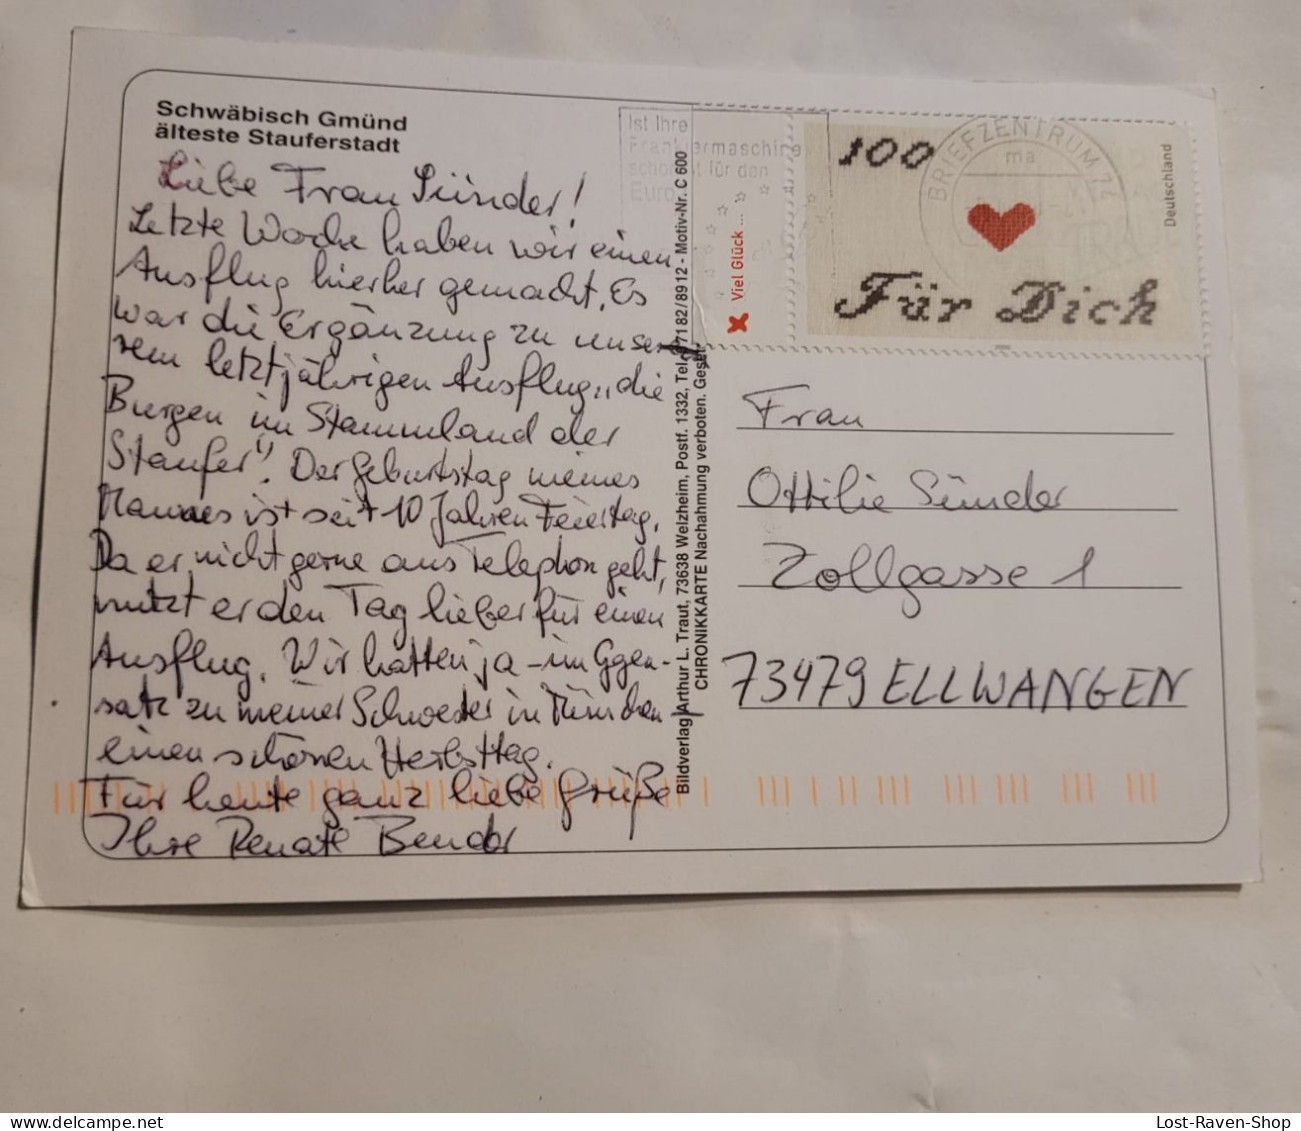 Schwäbisch Gmünd
älteste Stauferstadt
Liebe Frau Sünder!
Letzte Woche haben wir einen
Ausflug hierher gemacht. Es
war die Ergänzung zu unse-
rem letztjährigen Ausflug „die
Burgen im Stammland der
Staufer". Der Geburtstag meines
Mannes ist seit 10 Jahren Feiertag.
Da er nicht gerne ans Telephon geht,
nutzt er den Tag lieber für einen
Ausflug. Wir hatten ja - im Ggen-
satz zu meiner Schwester in München -
einen schönen Herbsttag.
Für heute ganz liebe Grüße
Ihre Renate Bender
Bildverlag Arthur L. Traut, 73638 Welzheim, Postf. 1332, Tel. 07182/8912 - Motiv-Nr. C 600
CHRONIKKARTE Nachahmung verboten. Ges.
Ist Ihre
Frankiermaschine
schon fit für den
Euro
Viel Glück ...
100
Für Dich
Deutschland
BRIEFZENTRUM
ma
Frau
Ottilie Sünder
Zollgasse 1
73479 ELLWANGEN
Lost-Raven-Shop